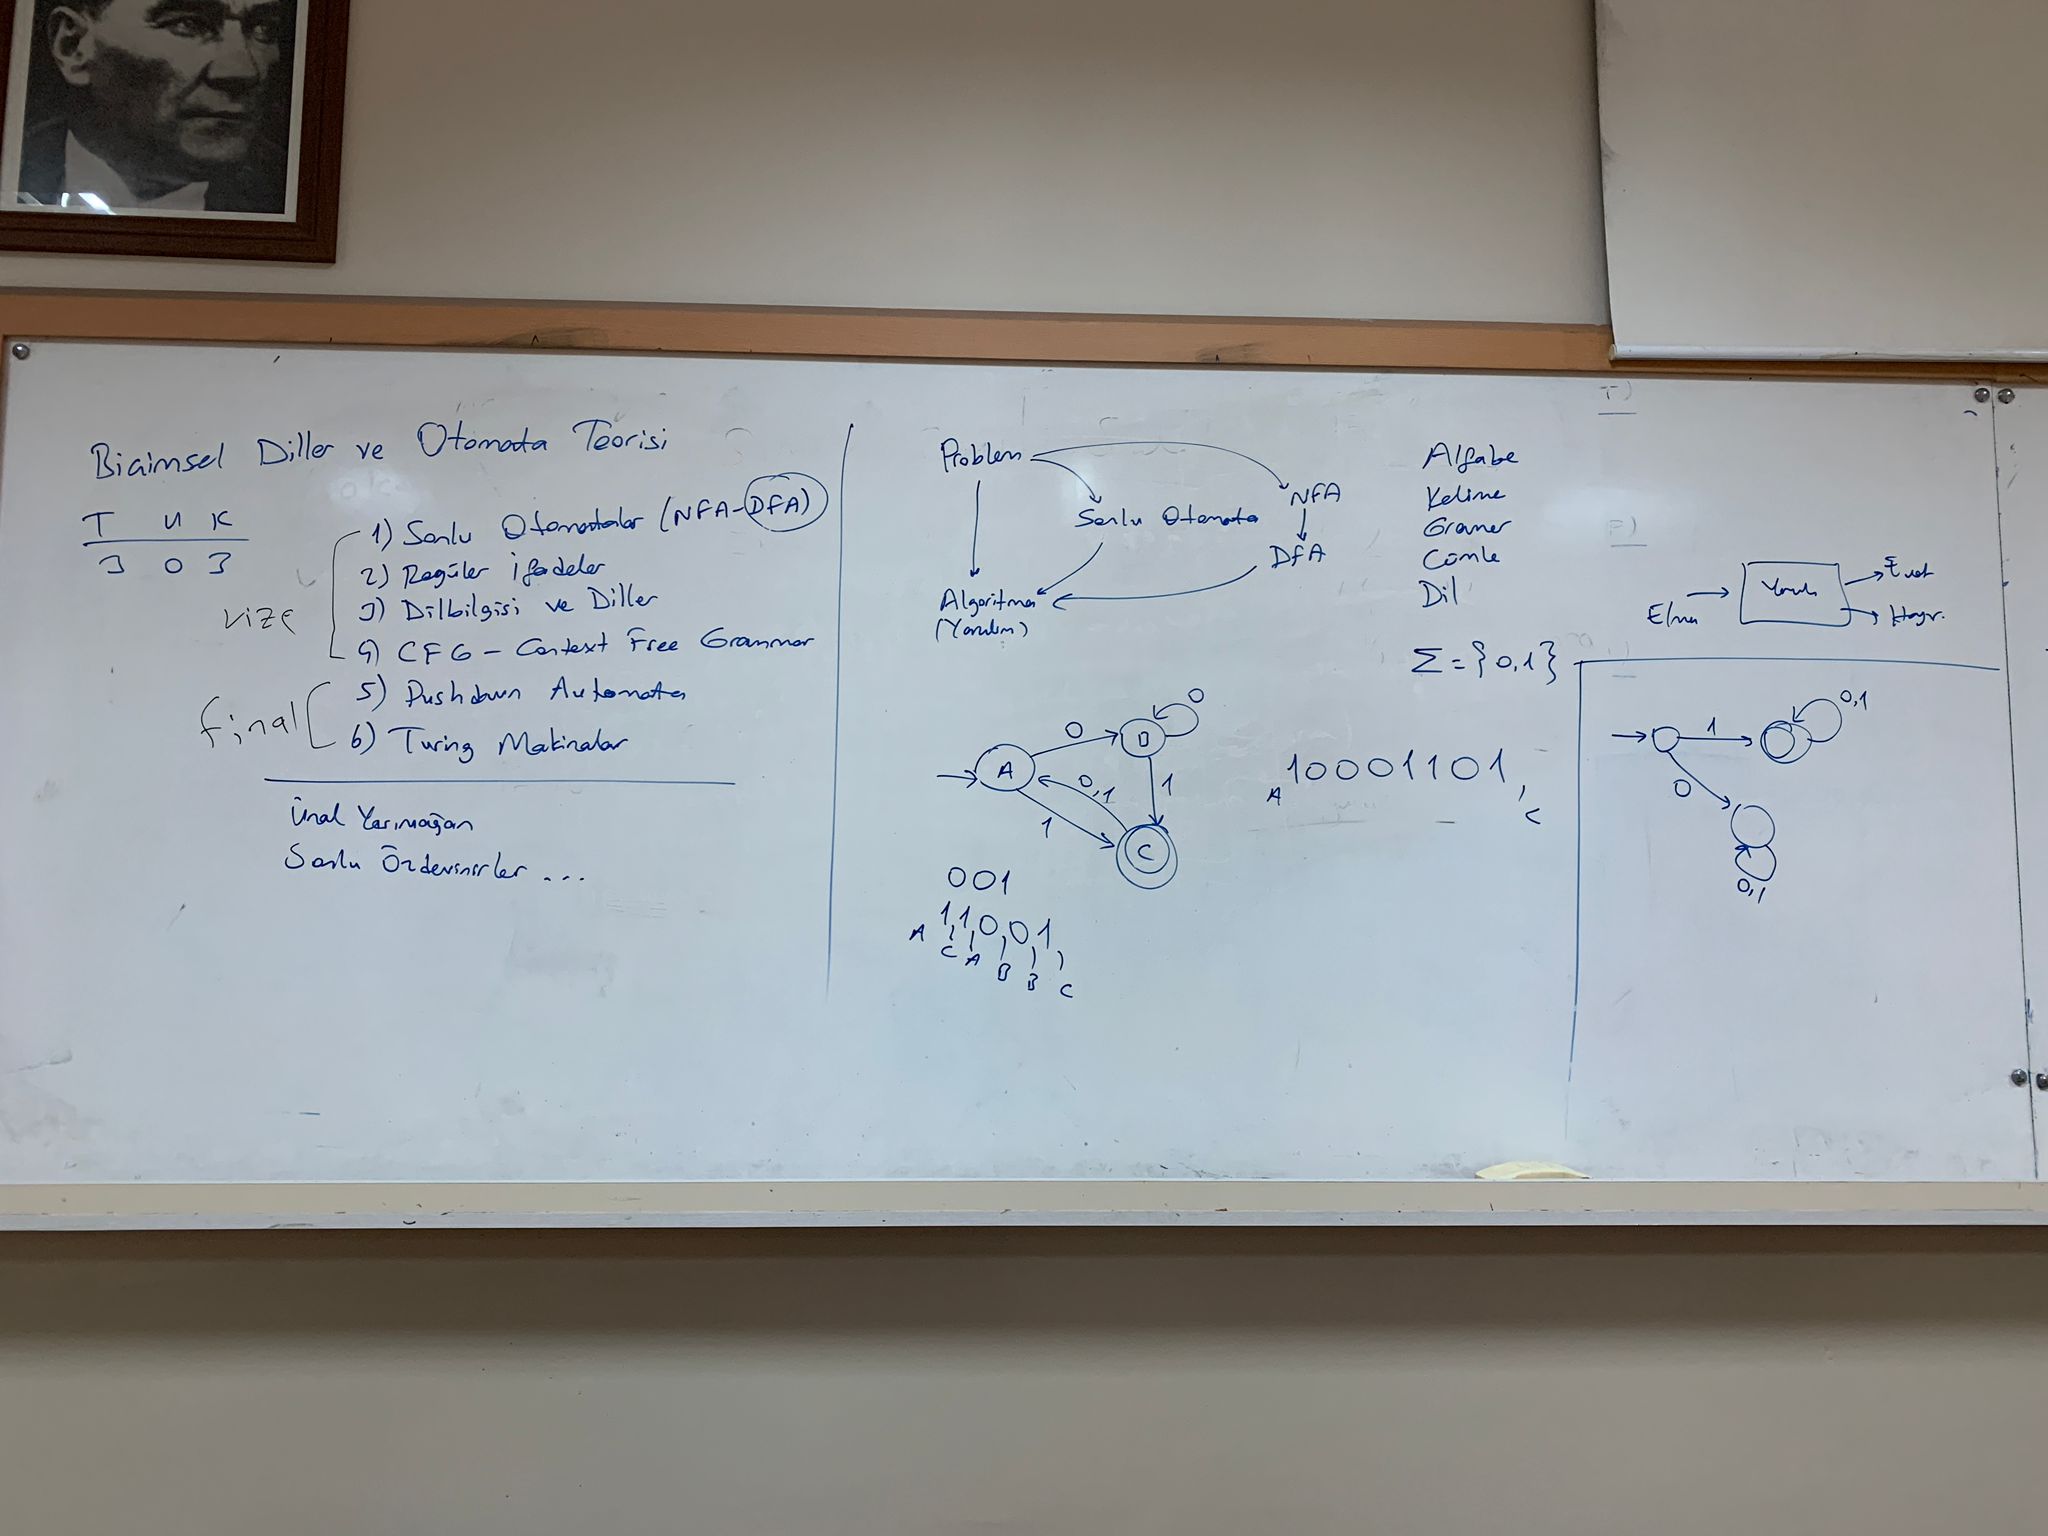 Biçimsel Diller ve Otomata Teorisi
T U K
3 0 3
vize
1) Sonlu Otomatalar (NFA-DFA)
2) Regüler İfadeler
3) Dilbilgisi ve Diller
4) CFG - Context Free Grammar
final
5) Pushdown Automata
6) Turing Makinalar
Ünal Yarımağan
Sonlu Özdevinirler ...
Problem
Sonlu Otomata
NFA
DFA
Algoritma
(Yazılım)
A
B
C
0
0
0,1
1
1
001
11001
A C A B B C
Alfabe
Kelime
Gramer
Cümle
Dil
Σ = {0,1}
A 10001101, C
Elma
Evet
Hayır.
1
0,1
0
0,1